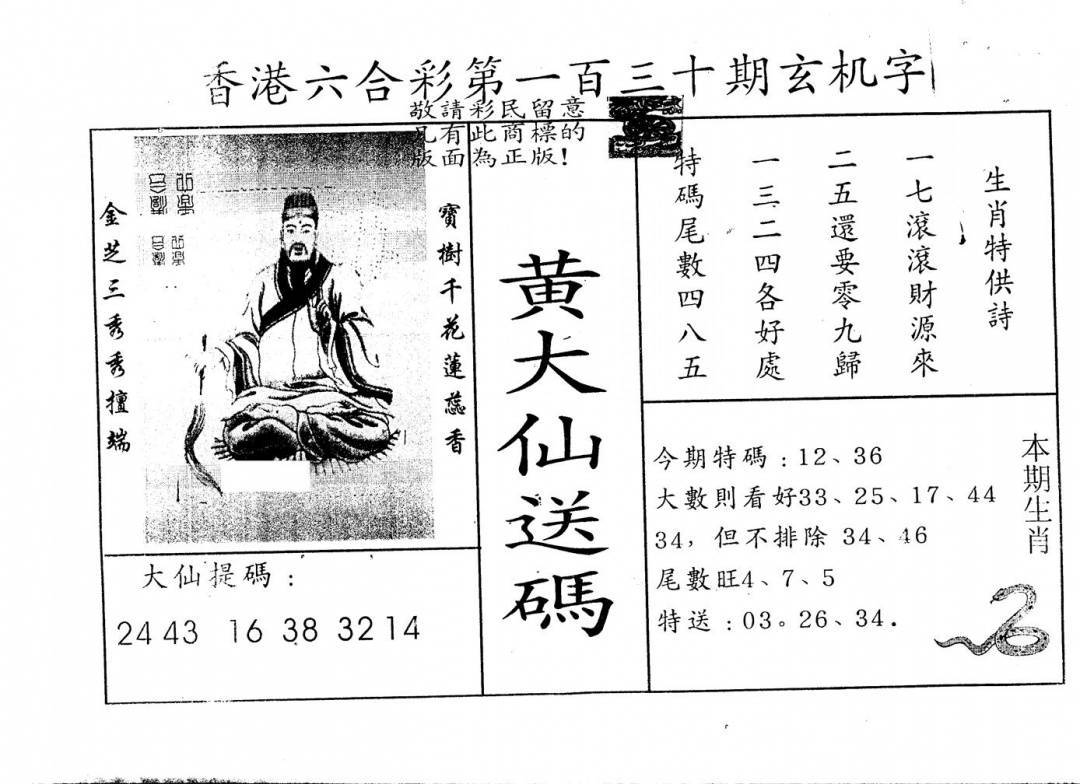 香港六合彩第一百三十期玄机字
敬請彩民留意
凡有此商標的
版面為正版!
寶樹千花蓮蕊香
金芝三秀秀擅端
大仙提碼:
24 43 16 38 32 14
黄大仙送碼
生肖特供詩
一七滾滾財源來
二五還要零九歸
一三二四各好處
特碼尾數四八五
本期生肖
今期特碼:12、36
大數則看好33、25、17、44
34,但不排除 34、46
尾數旺4、7、5
特送:03。26、34.